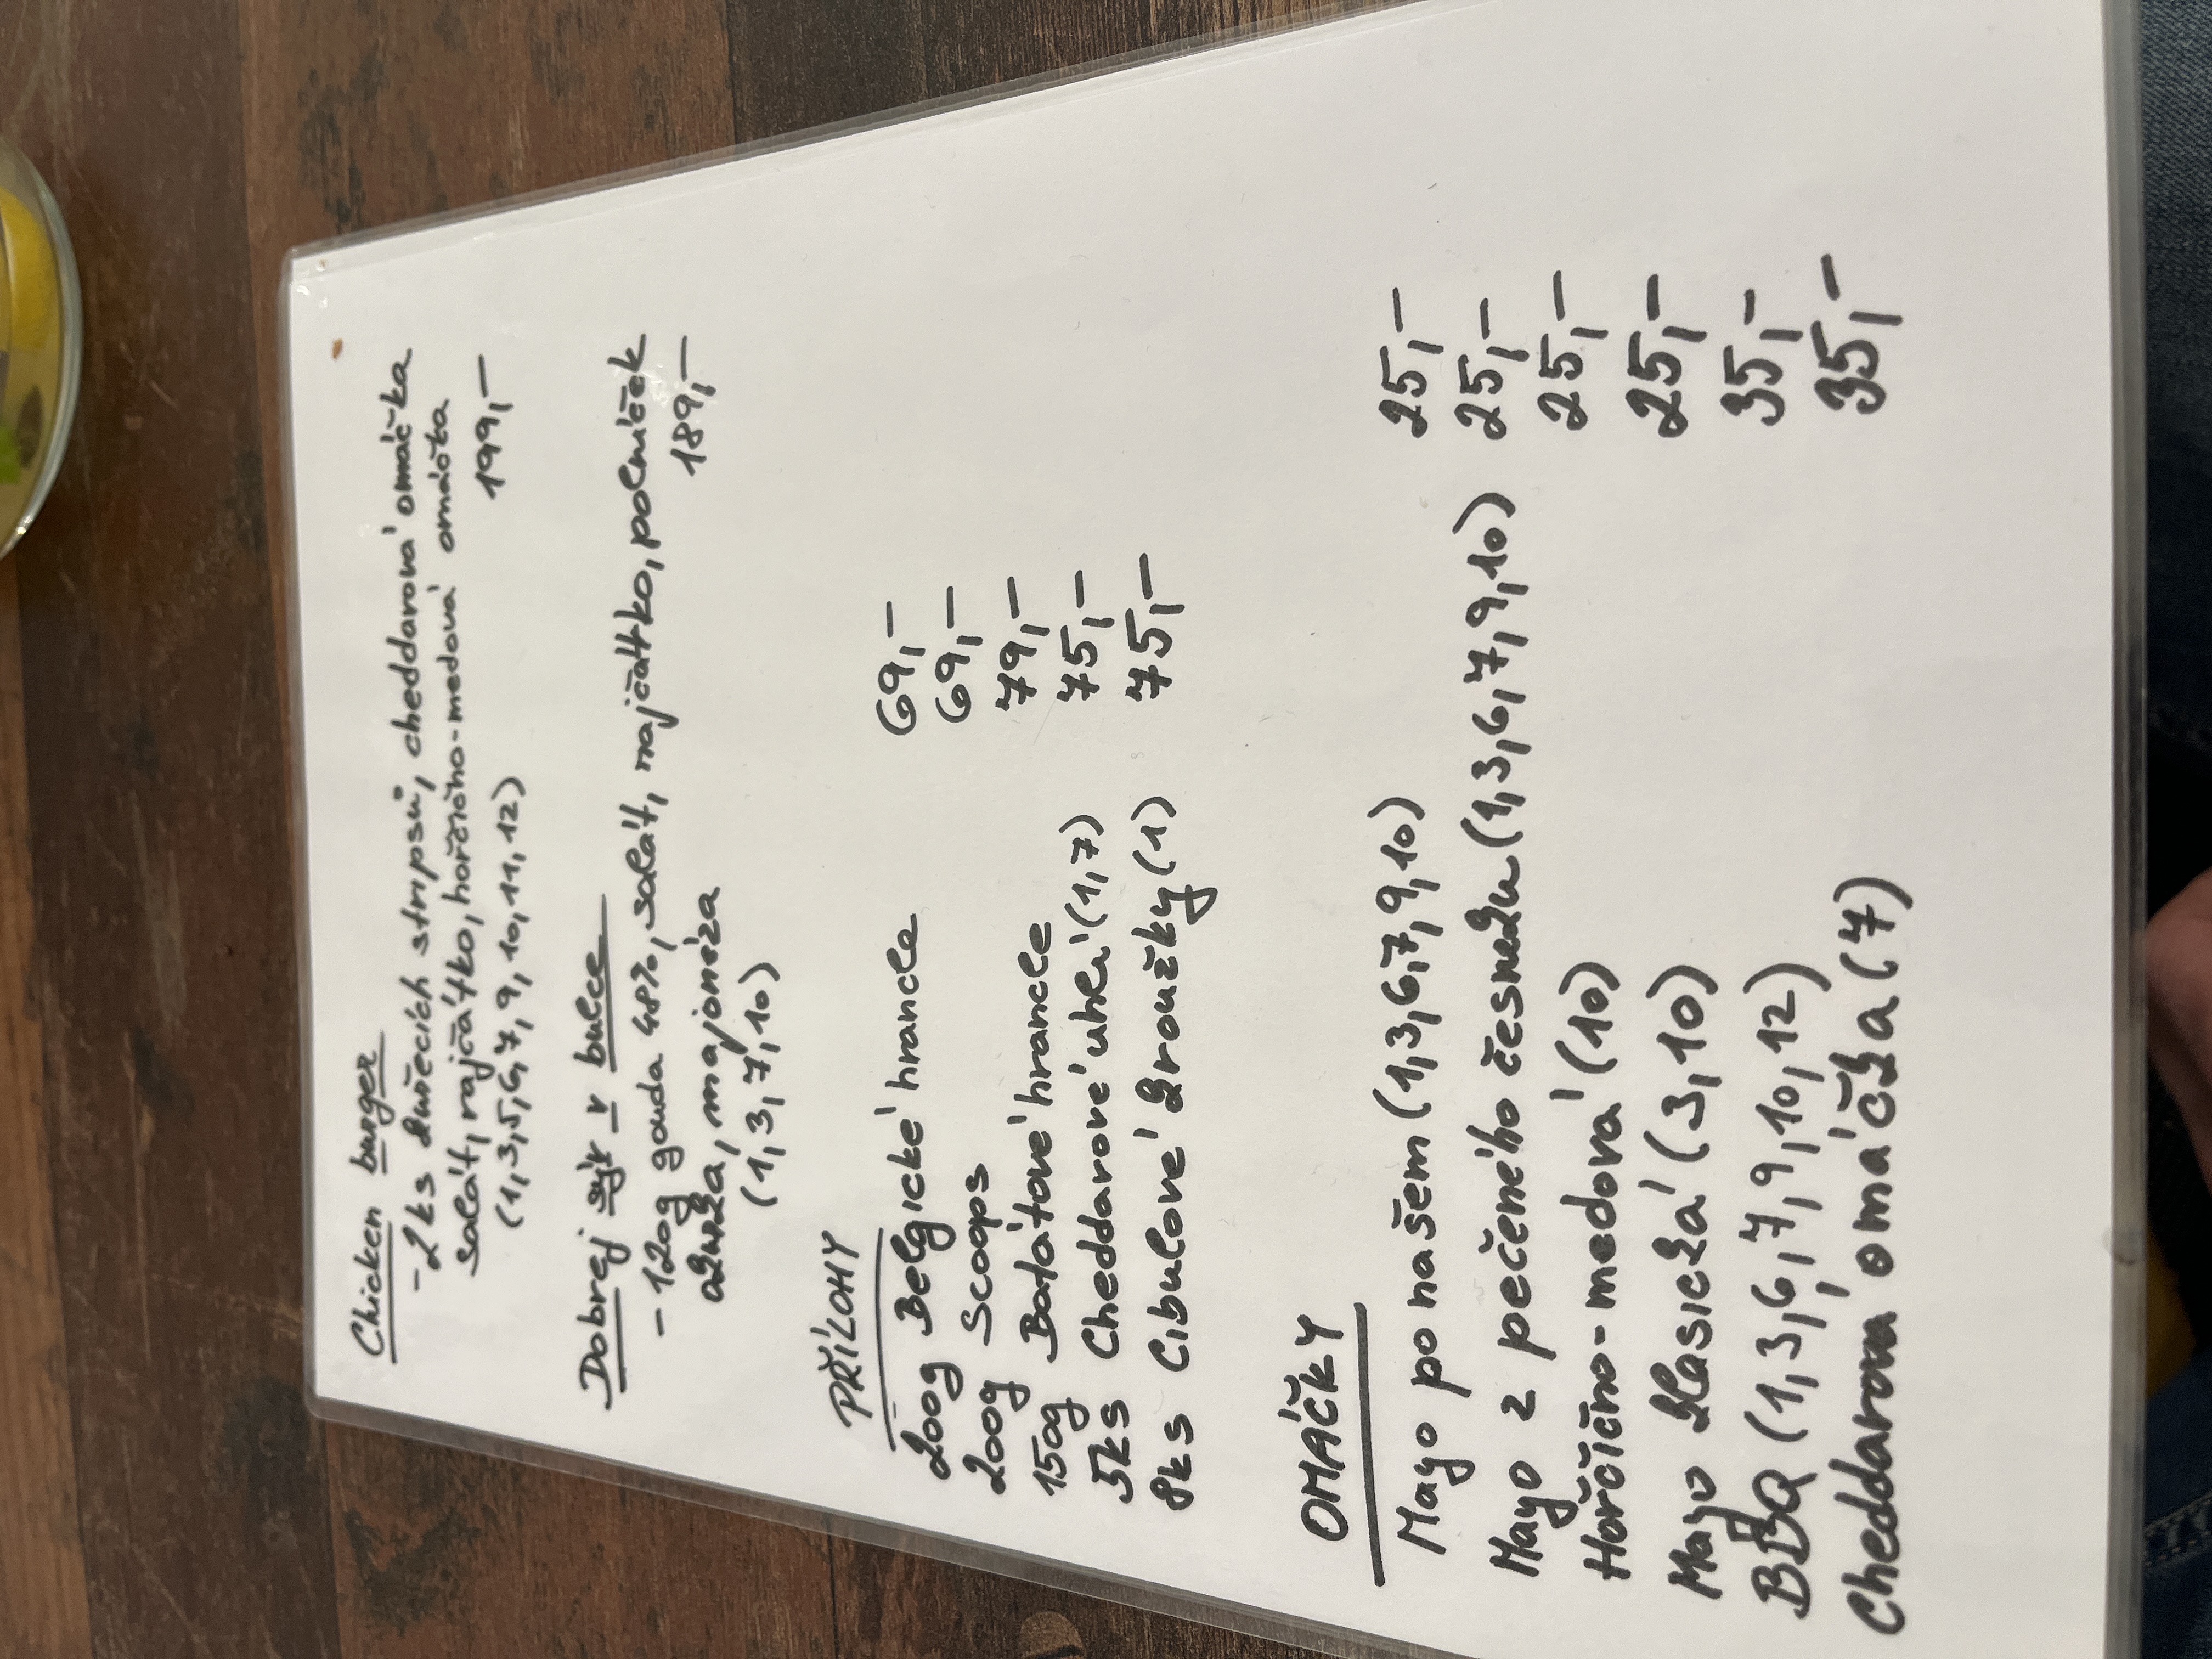 Chicken burger
- 2ks kuřecích stripsů, cheddarová omáčka
salát, rajčátko, hořčičho-medová omáčka
(1,3,5,6,7,9,10,11,12) 199,-
Dobrej sýr v bulce
- 120g gouda 48%, salát, rajčátko, polníček
okurka, majonéza 189,-
(1,3,7,10)
PŘÍLOHY
200g Belgické hranole 69,-
200g Scoops 69,-
150g Batátové hranole 79,-
5ks Cheddarové uhlí (1,7) 75,-
8ks Cibulové kroužky (1) 75,-
OMÁČKY
Mayo po našem (1,3,6,7,9,10) 25,-
Mayo z pečeného česneku (1,3,6,7,9,10) 25,-
Hořčično-medová (10) 25,-
Mayo klasická (3,10) 25,-
BBQ (1,3,6,7,9,10,12) 35,-
Cheddarová omáčka (7) 35,-